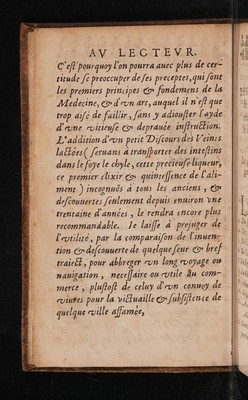 AV LECTEVR.
C'est pourquoy l'on pourra avec plus de cer-
titude se preoccuper de ses preceptes, qui sont
les premiers principes & fondement de la
Medecine, & d'vn art, auquel il n'est que
trop aisé de faillir, sans y adiouster l'ayde
d'vne vitieuse & deprauée instruction.
L'addition d'vn petit Discours des Veines
lactées (seruans à transporter des intestins
dans le foye le chyle, cette precieuse liqueur,
ce premier elixir & quintessence de l'ali-
ment) incognuës à tous les anciens, &
descouuertes seulement depuis enuiron vne
trentaine d'années, le rendra encore plus
recommandable. Je laisse à prejuger de
l'vtilité, par la comparaison de l'inuen-
tion & descouuerte de quelque seur & bref
traiect, pour abbreger vn long voyage ou
nauigation, necessaire ou vtile au com-
merce, plustost de celuy d'vn conuoy de
viures pour la victuaille & subsistence de
quelque ville affamée,